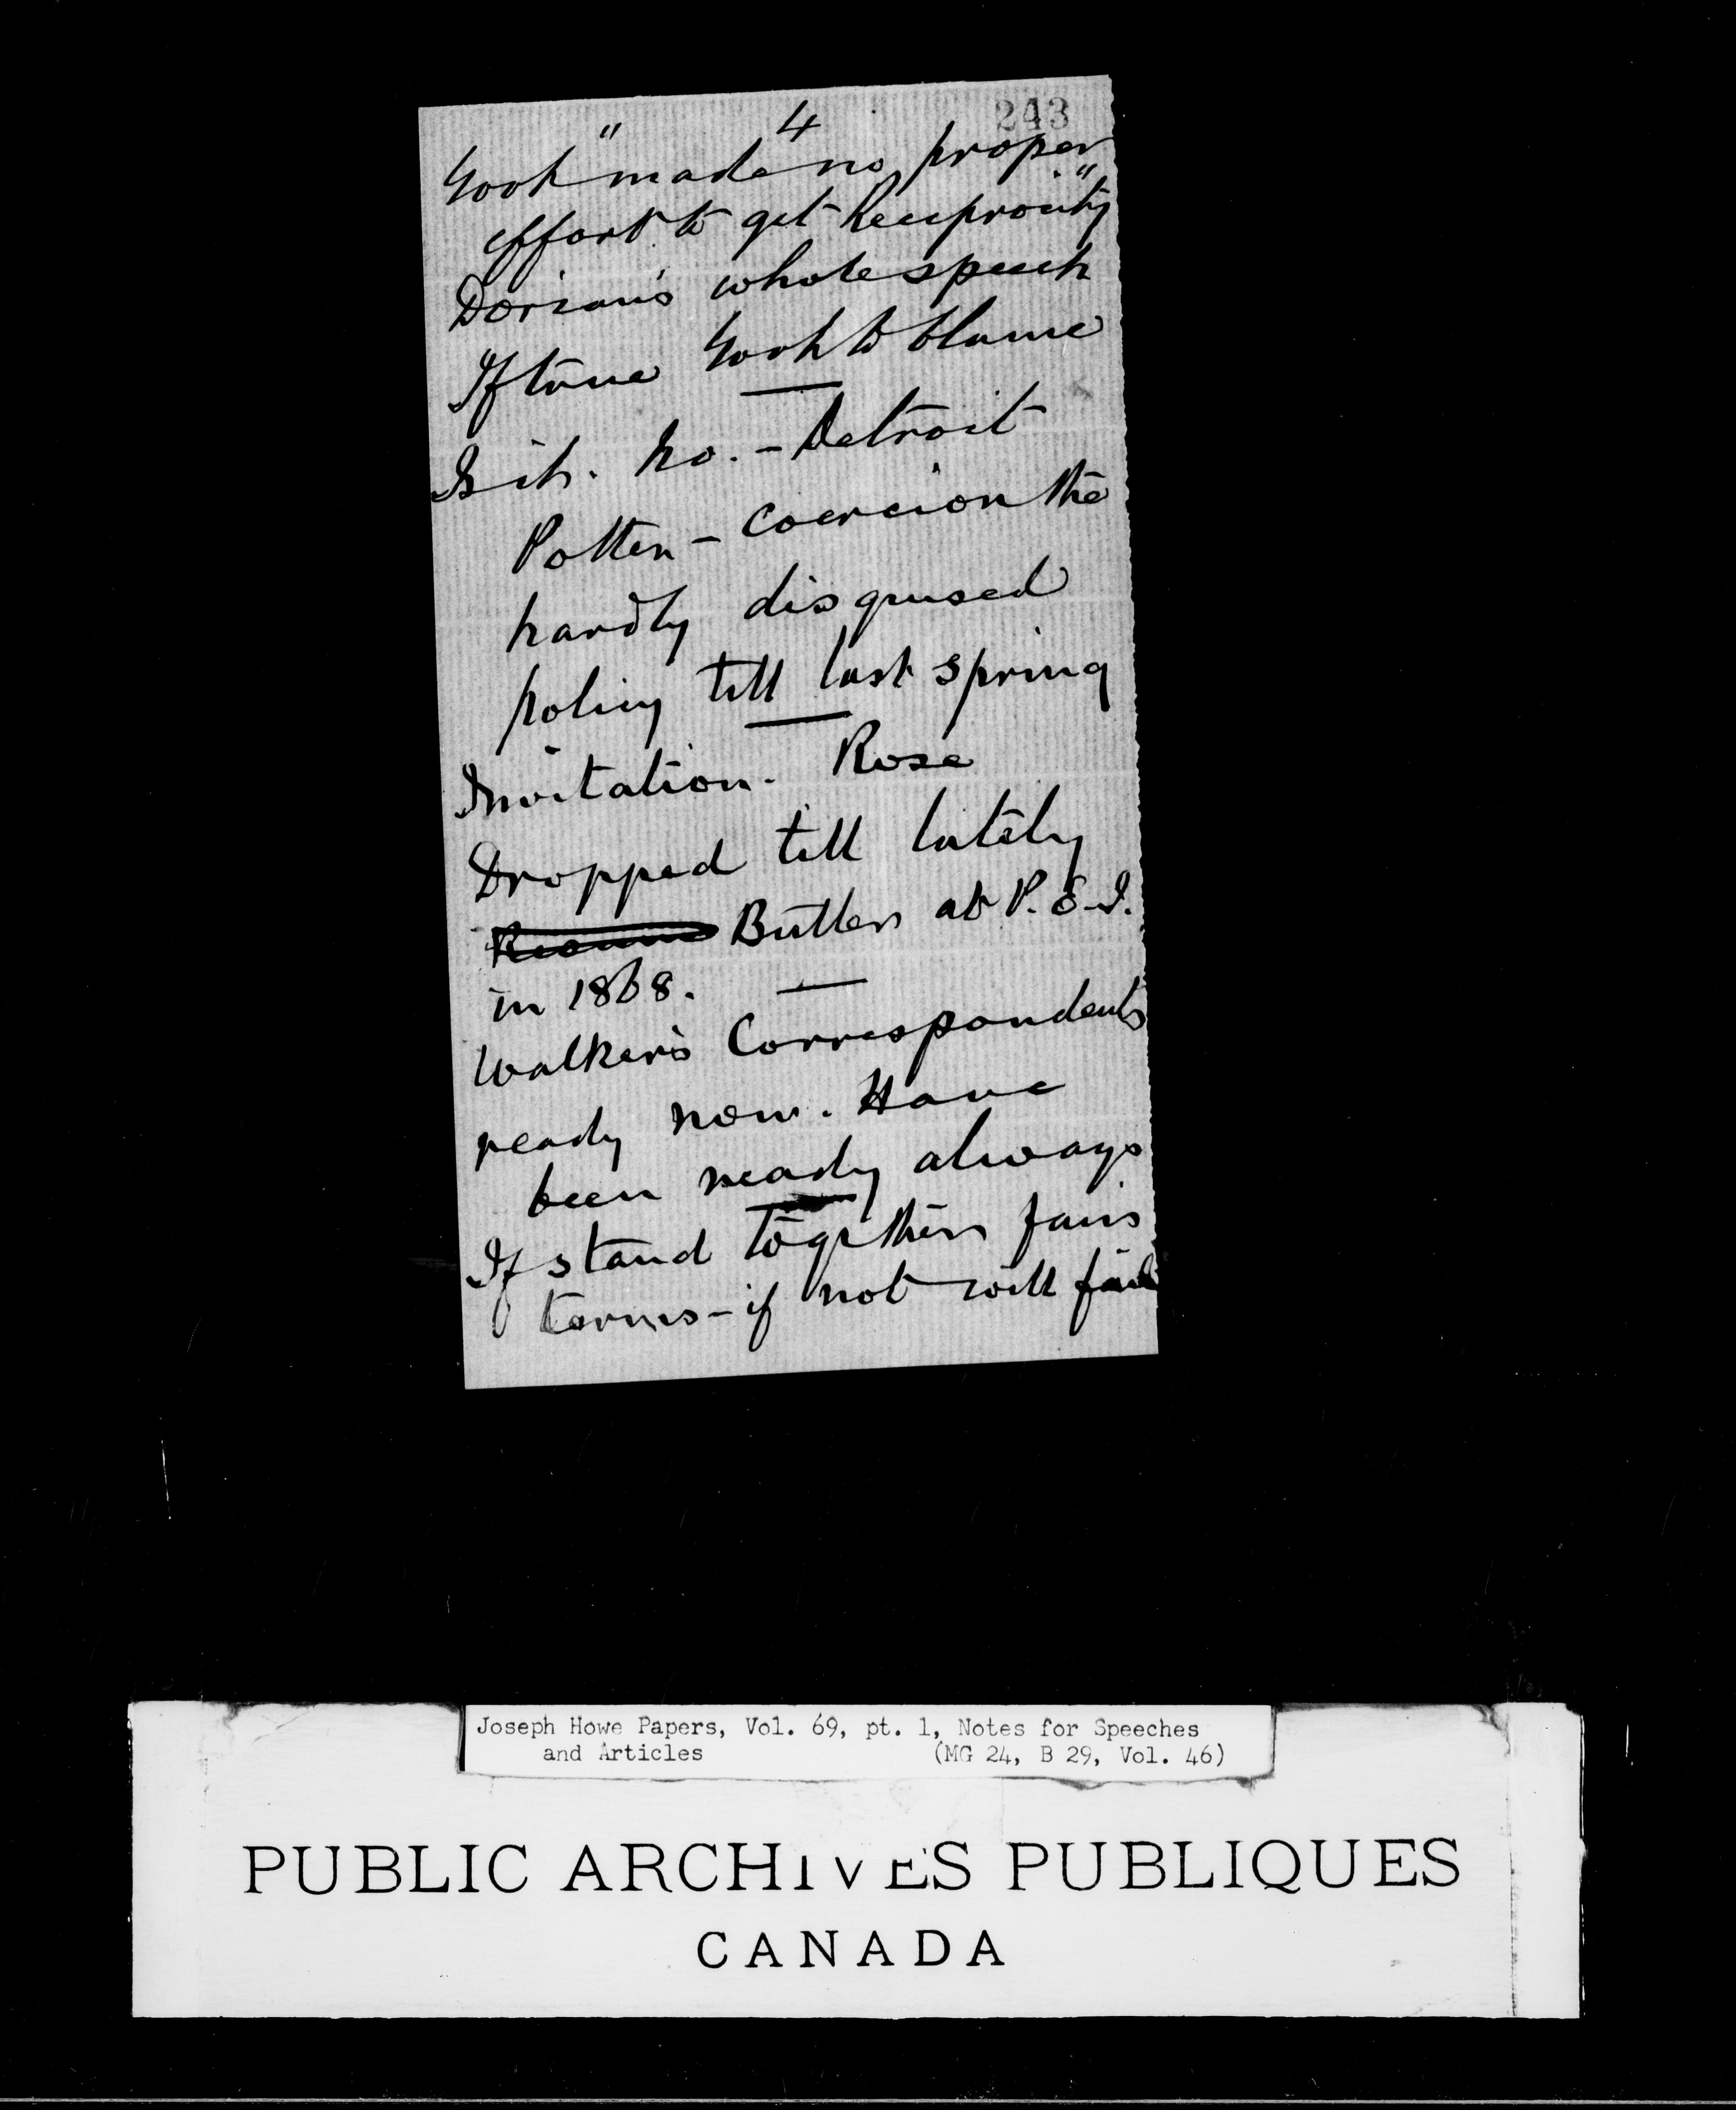 4
243
Govt "made no proper
effort to get Reciprocity"
Dorion's whole speech
If true Govt to blame
Is it. No. - Detroit
Potter - Coercion the
hardly disguised
policy till last spring
Invitation. Rose
Dropped till lately
Butler at P.E.I.
in 1868.
Walker's Correspondents
ready now. Have
been ready always
If stand together fair
terms - if not will fail
Joseph Howe Papers, Vol. 69, pt. 1, Notes for Speeches
and Articles (MG 24, B 29, Vol. 46)
PUBLIC ARCHIVES PUBLIQUES
CANADA